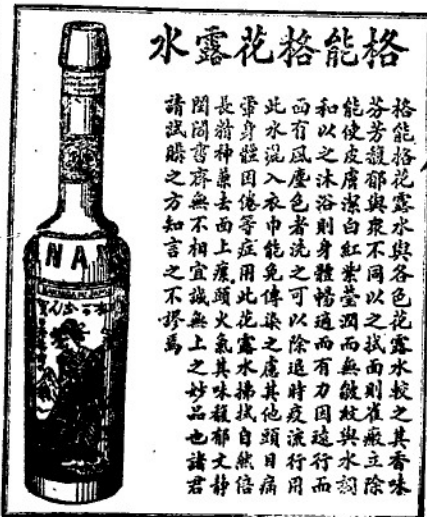 格能格花露水
格能格花露水與各色花露水較之其香味
芬芳馥郁與衆不同以之拭面則雀瘢立除
能使皮膚潔白紅紫瑩潤而無皺紋與水調
和以之沐浴則身體暢適而有力因遠行而
面有風塵色者洗之可以除退時疫流行用
此水混入衣巾能免傳染之慮其他頭目痛
暈身體困倦等症用此花露水拂拭自然倍
長精神兼去面上瘰頭火氣其味馥郁文靜
閨閣書齋無不相宜誠無上之妙品也諸君
請試購之方知言之不謬焉
NAN